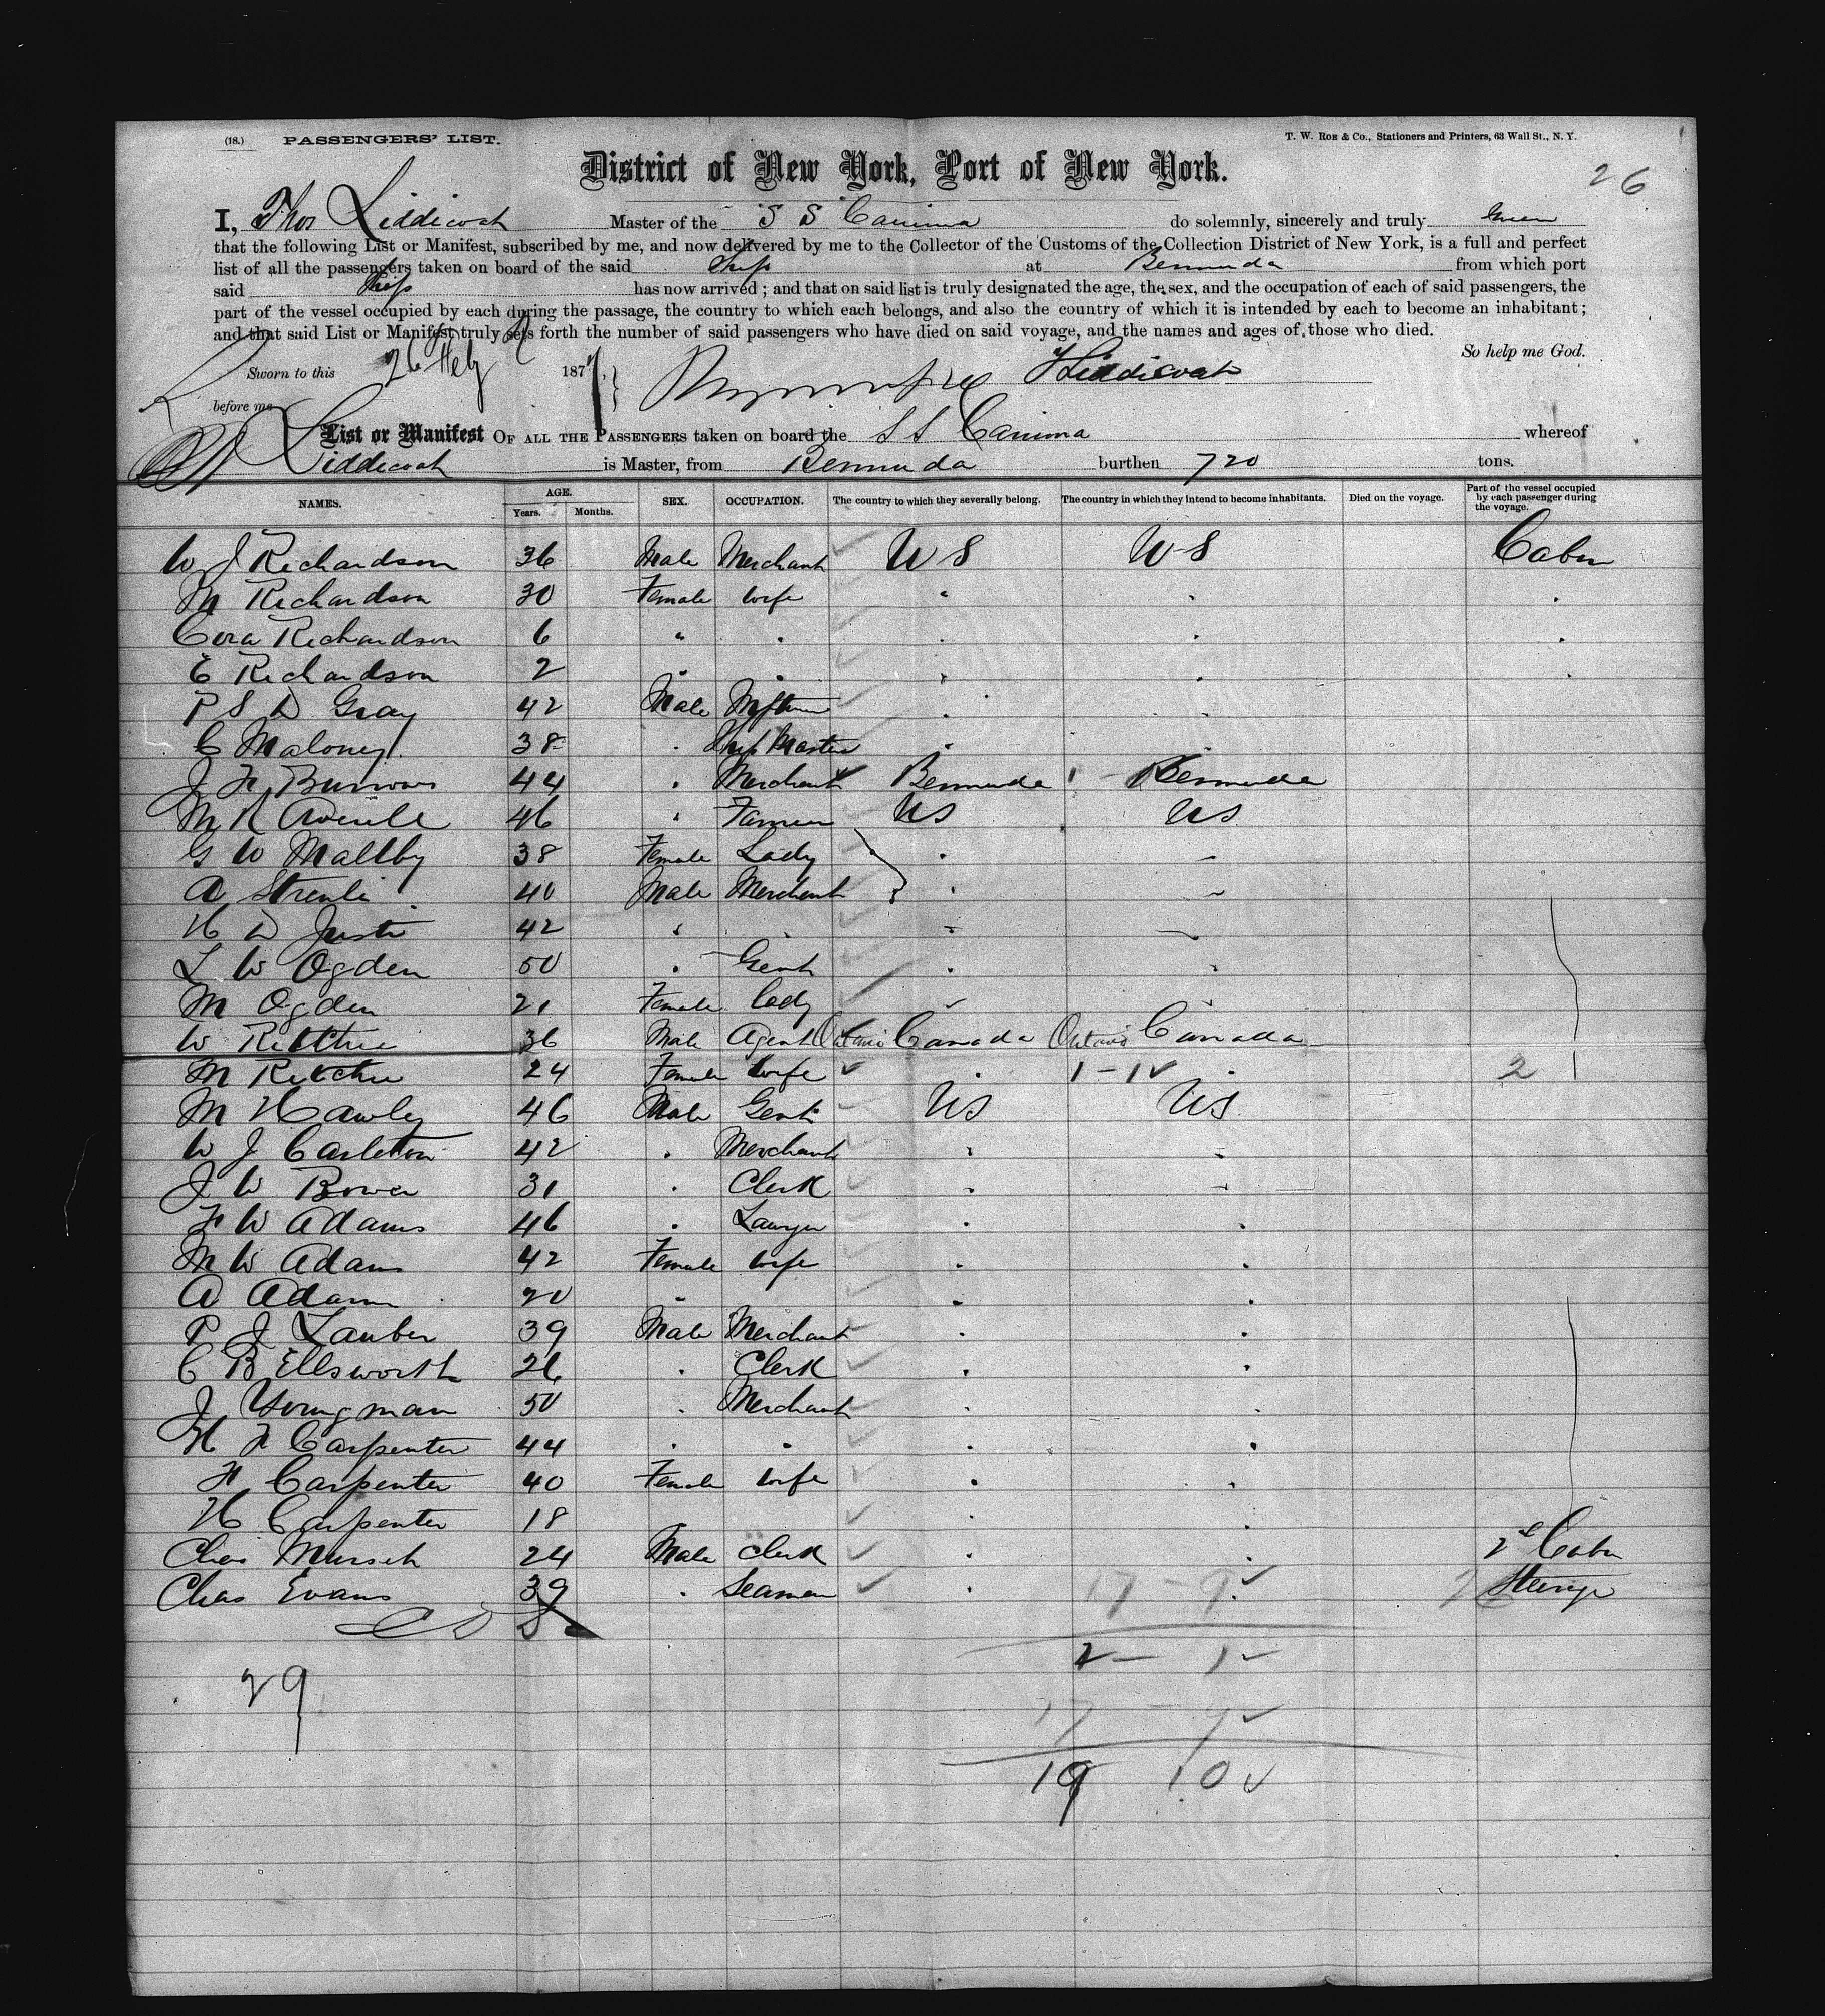 (18.) PASSENGERS' LIST. T. W. ROE & CO., Stationers and Printers, 63 Wall St., N. Y.
District of New York, Port of New York.
26
I, Thos Liddicoat Master of the S S Canima do solemnly, sincerely and truly swear
that the following List or Manifest, subscribed by me, and now delivered by me to the Collector of the Customs of the Collection District of New York, is a full and perfect
list of all the passengers taken on board of the said Ship at Bermuda from which port
said Ship has now arrived; and that on said list is truly designated the age, the sex, and the occupation of each of said passengers, the
part of the vessel occupied by each during the passage, the country to which each belongs, and also the country of which it is intended by each to become an inhabitant;
and that said List or Manifest truly sets forth the number of said passengers who have died on said voyage, and the names and ages of those who died.
So help me God.
Sworn to this 26 Feby 187 Liddicoat
before me
List or Manifest OF ALL THE PASSENGERS taken on board the S S Canima whereof
Liddicoat is Master, from Bermuda burthen 720 tons.
NAMES. AGE. Years. Months. SEX. OCCUPATION. The country to which they severally belong. The country in which they intend to become inhabitants. Died on the voyage. Part of the vessel occupied by each passenger during the voyage.
W J Richardson 36 Male Merchant U S U S Cabin
M Richardson 30 Female wife " " "
Cora Richardson 6 " " " " "
E Richardson 2 " " " " "
P S D Gray 42 Male " "
C Maloney 38 " Ship Master " "
J H Burrows 44 " Merchant Bermuda 1 - Bermuda
M R 46 " Farmer US US
G W Maltby 38 Female Lady " "
A 40 Male Merchant " "
H D Justi 42 " " " "
L W Ogden 50 " Gent " "
M Ogden 21 Female Lady " "
W Ritchie 36 Male Agent Ontario Canada Ontario Canada
M Ritchie 24 Female wife " 1-1 " 2
M Hawley 46 Male Gent US US
W J Carleton 42 " Merchant " "
J W Bower 31 " Clerk " "
F W Adams 46 " Lawyer " "
M W Adams 42 Female wife " "
A Adams 20 " " "
P J Lauber 39 Male Merchant " "
C B Ellsworth 26 " Clerk " "
J Youngman 50 " Merchant " "
H F Carpenter 44 " " " "
F Carpenter 40 Female wife " "
H Carpenter 18 " " "
Chas 24 Male Clerk " " 2d Cabin
Chas Evans 39 " Seaman " 17 - 9 " Steerage
2 - 1
29
17 - 9
19 10